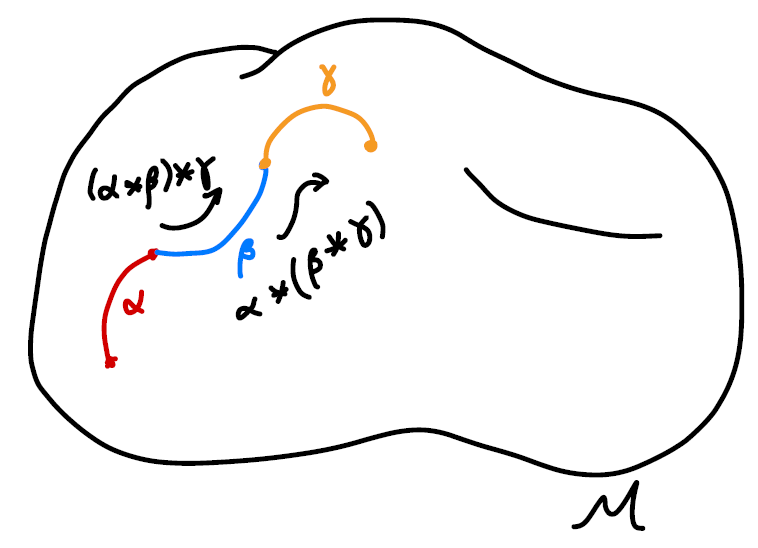 γ
(α*β)*γ
β
α*(β*γ)
α
M